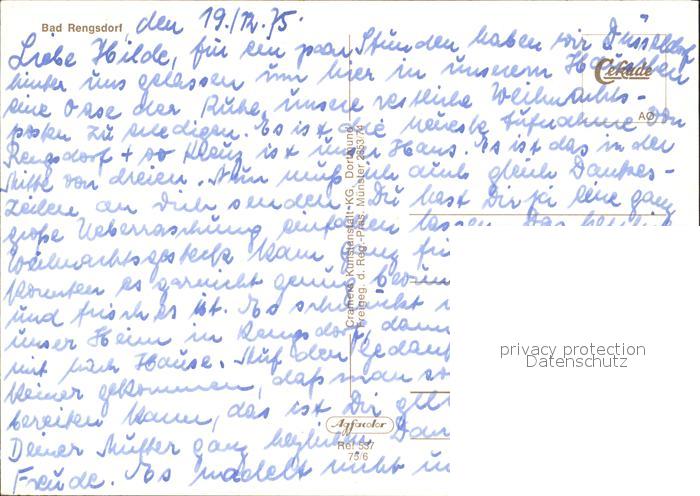 Bad Rengsdorf, den 19./12. 75.
Liebe Hilde, für ein paar Stunden haben wir Düsseldorf
hinter uns gelassen um hier in unserem Häuschen
eine Oase der Ruhe, unsere restliche Weihnachts-
posten zu erledigen. Es ist die neueste Aufnahme von
Rengsdorf + wo Kreuz ist unser Haus. Es ist das in der
Mitte von dreien. Nun muß ich auch gleich Dankes-
zeilen, an Dich senden. Du hast Dir ja eine ganz
große Ueberraschung einfallen lassen. Das
Weihnachtsgesteck kam
konnten es garnicht genug
und frisch es ist. Es schmückt
unser Heim in Rengsdorf, dann
mit nach Hause. Auf den
keiner gekommen, daß man so
bereiten kann, das ist Dir
Deiner Mutter ganz herzlichen
Freude. Es nadelt nicht
Cekade
AO
Cramers Kunstanstalt KG, Dortmund
Freigeg. d. Reg.-Präs. Münster 2863/74
Agfacolor
Ref 537
75/6
privacy protection
Datenschutz